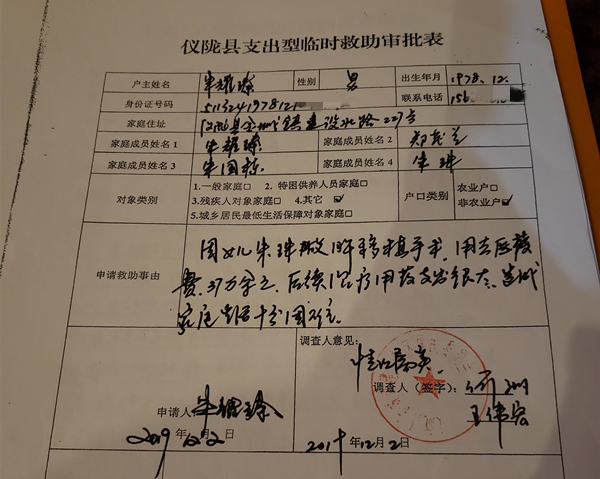 仪陇县支出型临时救助审批表
户主姓名 朱耀臻 性别 男 出生年月 1978.12.
身份证号码 5113241978121 联系电话 156
家庭住址 仪陇县金城镇建设北路227号
家庭成员姓名1 朱耀臻 家庭成员姓名2
家庭成员姓名3 朱国栋 家庭成员姓名4 朱珠
对象类别 1.一般家庭□ 2. 特困供养人员家庭□
3.残疾人对象家庭□ 4.其它☑
5.城乡居民最低生活保障对象家庭□
户口类别 农业户□
非农业户☑
申请救助事由 因女儿朱珠做 移植手术,用去医药
费.37万余元.后续治疗用药支出很大.造成
家庭生活十分困难.
调查人意见:
情况属实
调查人(签字):
王伟宏
申请人 朱耀臻
2019年12月2日
2019年12月2日